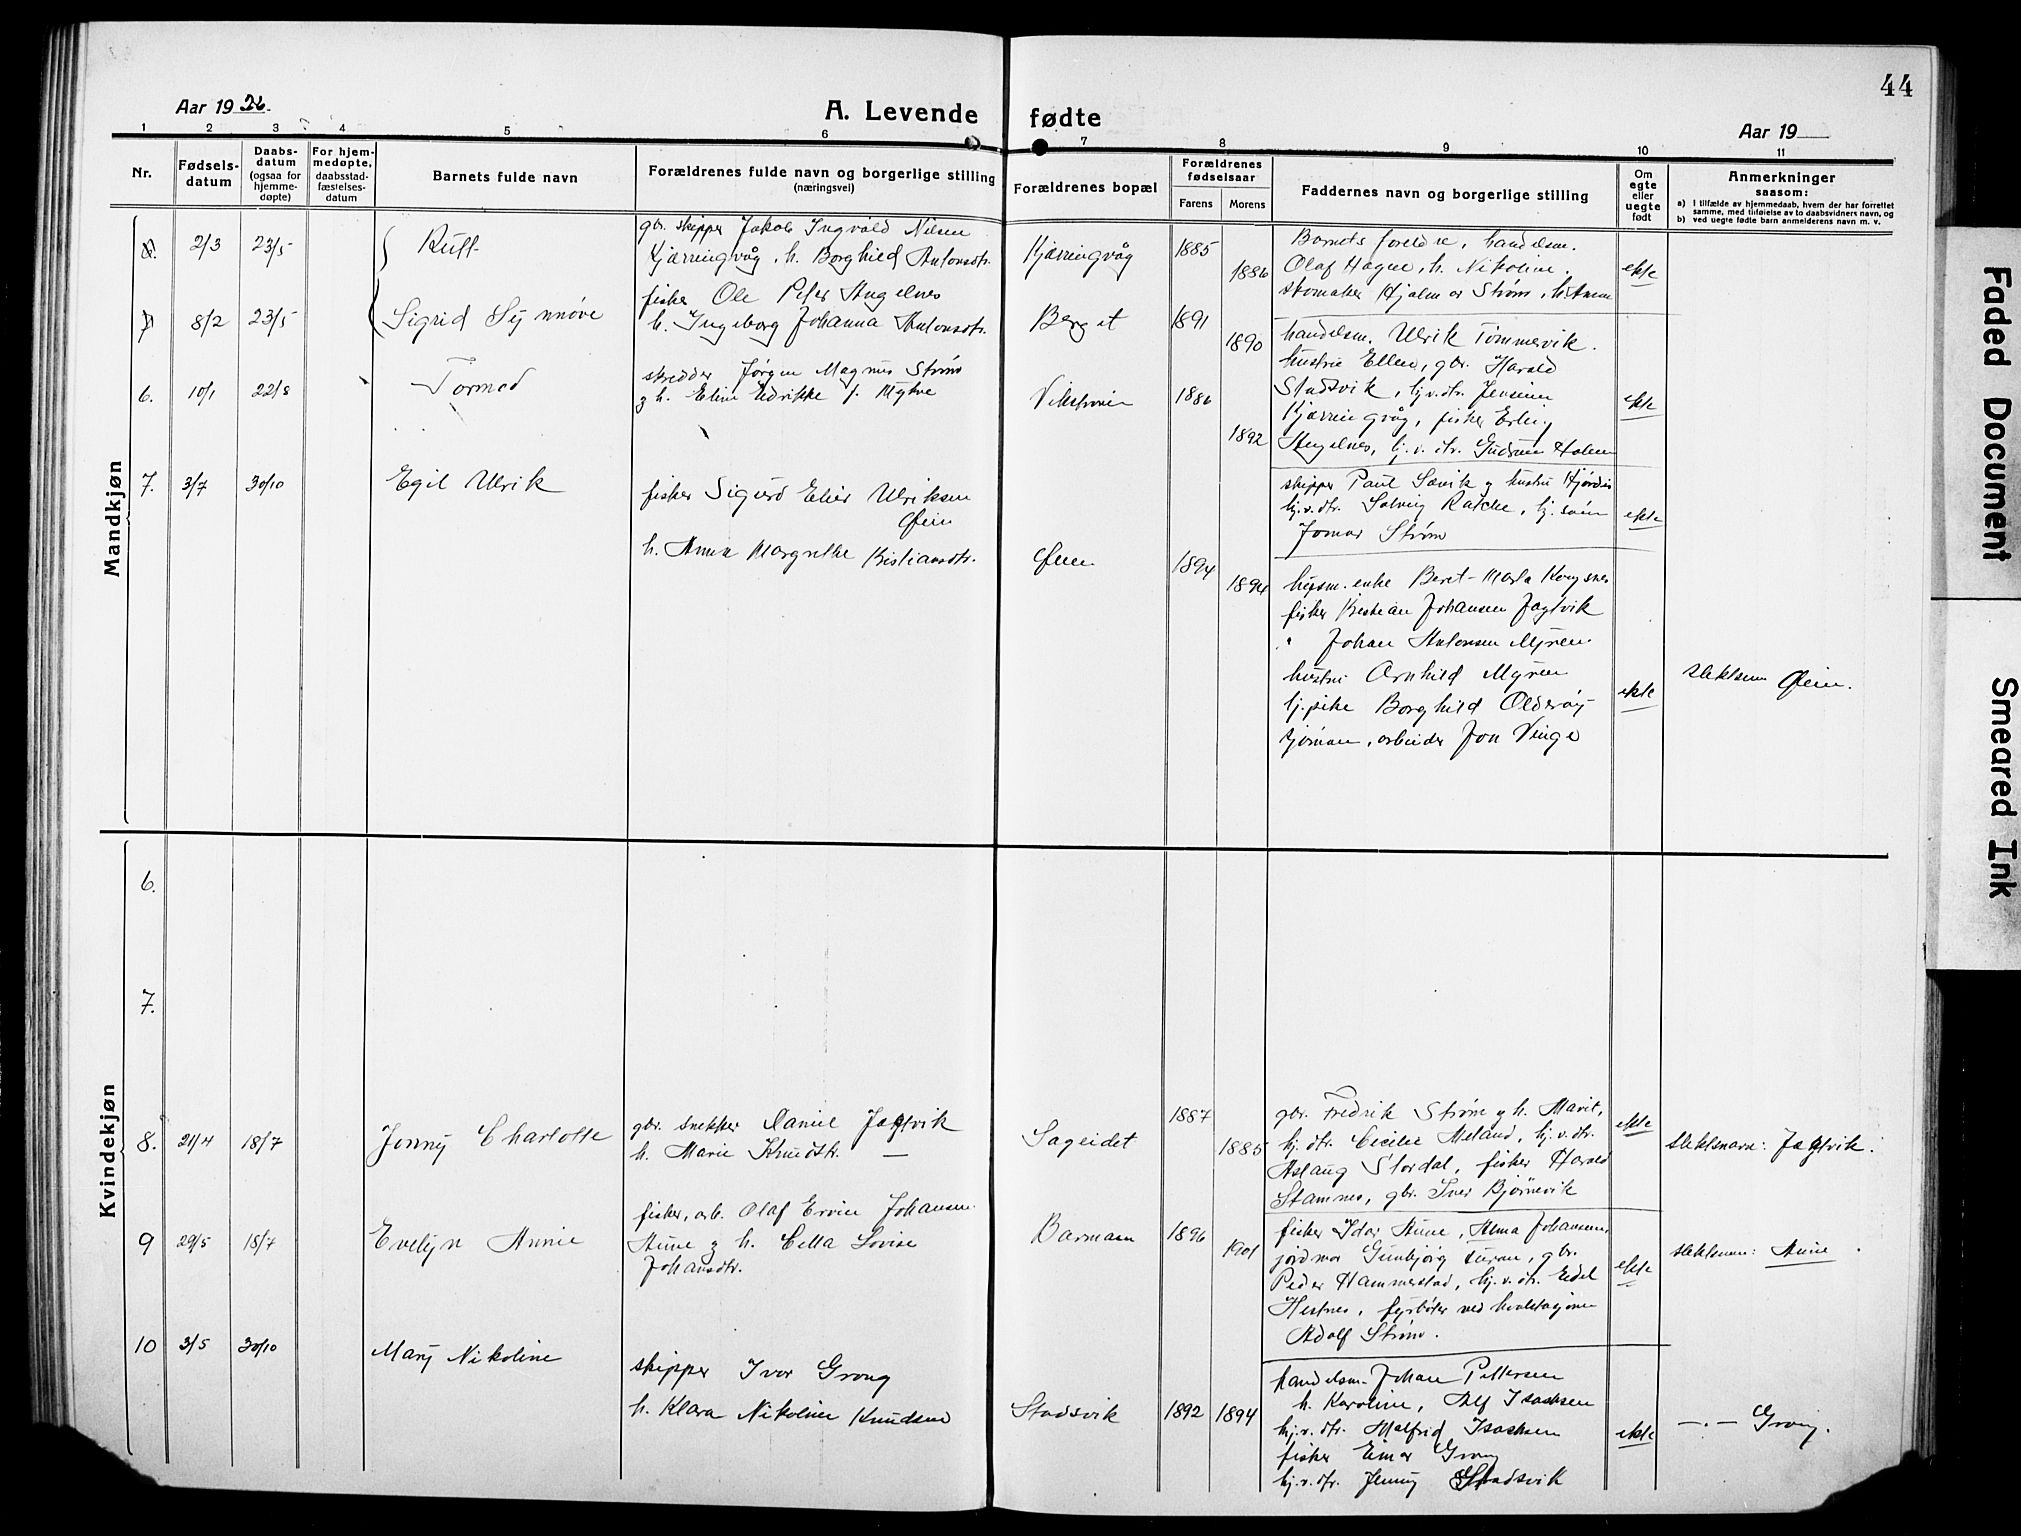 44
Aar 19 26.
A. Levende fødte
Aar 19
1 2 3 4 5 6 7 8 9 10 11
Nr.
Fødselsdatum
Daabsdatum (ogsaa for hjemmedøpte)
For hjemmedøpte, daabsstadfæstelsesdatum
Barnets fulde navn
Forældrenes fulde navn og borgerlige stilling
(næringsvei)
Forældrenes bopæl
Forældrenes fødselsaar
Farens Morens
Faddernes navn og borgerlige stilling
Om egte eller uegte født
Anmerkninger
saasom:
a) I tilfælde av hjemmedaab, hvem der har forrettet
samme, med tilføielse av to daabsvidners navn, og
b) ved uegte fødte barn anmelderens navn m. v.
Mandkjøn
2/3 23/5 Rutt
gbr. skipper Jakob Ingvald Nilsen
Kjærringvåg, h. Borghild Antonsdtr.
Kjærringvåg 1885 1886
Barnets foreldre, handelsm.
Olaf Hagne, h. Nikoline.
skomaker Hjalmar Strøm, h. Anna
ekte
8/2 23/5 Sigrid Synnøve
fisker Ole Peter Angelnes
h. Ingeborg Johanna Antonsdtr.
Berget 1891 1890
handelsm. Ulrik Tømmervik.
hustru Ellen, gbr. Harald
Stadsvik, hj.v.dtr. Jensine
Kjærringvåg, fisker Erling
Angelnes, hj.v.dtr. Gudrun Holm
ekte
6. 10/1 22/8 Tormod
skredder Jørgen Magnus Strøm
og h. Elin Edrikke f. Mykve
1886 1892
skipper Paul Sævik og hustru Hjørdis
hj.v.dtr. Solveig Ratche, hj. søn
Jomar Strøm
ekte
7. 3/7 30/10 Egil Ulrik
fisker Sigurd Elier Ulriksen
Øien
h. Anna Margrethe Kristiansdtr.
Øien 1894 1894
husm. enke Beret-Marta Kongsnes
fisker Kristian Johansen Jagtvik
" Johan Antonsen Myren
hustru Arnhild Myren
hj. pike Borghild Olderøy
Kjørnan, arbeider Jon Vinge
ekte
slektsnavn Øien.
Kvindekjøn
6.
7.
8. 21/4 18/7 Jonny Charlotte
gbr. snekker Daniel Jagtvik
h. Marie Knudtdtr. —
Sageidet 1887 1885
gbr. Fredrik Strøm og h. Marit,
hj. dtr. Cicilie Meland, hj.v.dtr.
Aslaug Stordal, fisker Harald
Stamnes, gbr. Iver Bjørnevik
ekte
slektsnavn: Jagtvik.
9 29/5 18/7 Evelyn Annie
fisker, arb. Olaf Ervin Johansen
Aune og h. Cella Lovise
Johansdtr.
Barman 1896 1901
fisker Idar Aune, Alma Johansen,
jordmor Gunbjørg Luran, gbr.
Peder Hammerstad, hj.v.dtr. Eidel
Hestnes, fyrbøter ved hvalstasjonen
Adolf Strøm.
ekte
slektsnavn: Aune.
10 3/5 30/10 Mary Nikoline
skipper Ivar Grong
h. Klara Nikoline Knudsen
Stadsvik 1892 1894
handelsm. Johan Pettersen
h. Karoline, Alf Isachsen
hj.v.dtr. Malfrid Isachsen
fisker Einar Grong
hj.v.dtr. Jenny Stadsvik
ekte
—"— Grong.
Faded Document
Smeared Ink